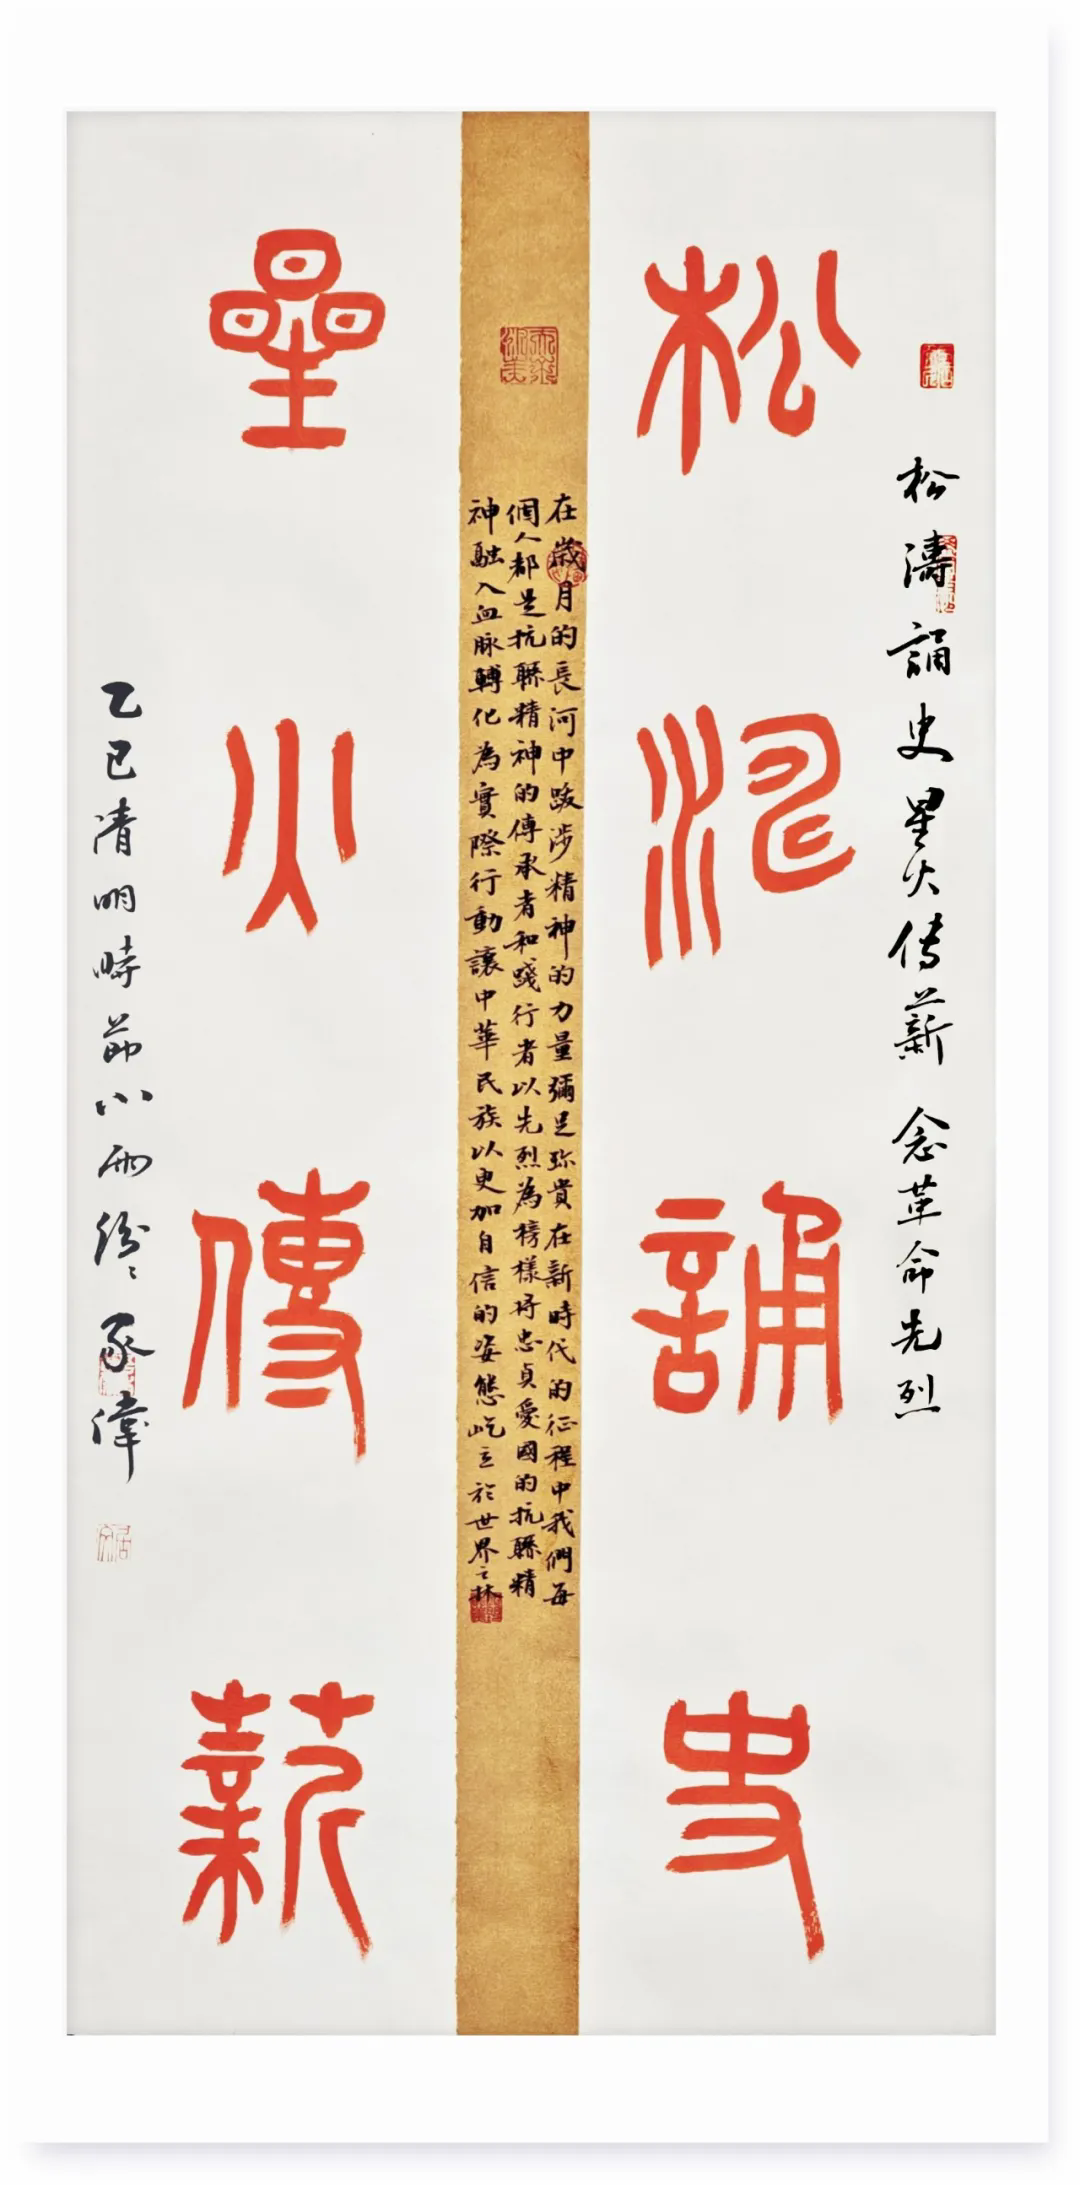 松濤誦史星火传薪 念革命先烈
松濤誦史
在歲月的長河中跋涉精神的力量彌足珍貴在新時代的征程中我們每
個人都是抗聯精神的傳承者和踐行者以先烈為榜樣将忠貞愛國的抗聯精
神融入血脉轉化為實際行動讓中華民族以更加自信的姿態屹立於世界之林
星火傳薪
乙巳清明時節小雨紛〻 偉